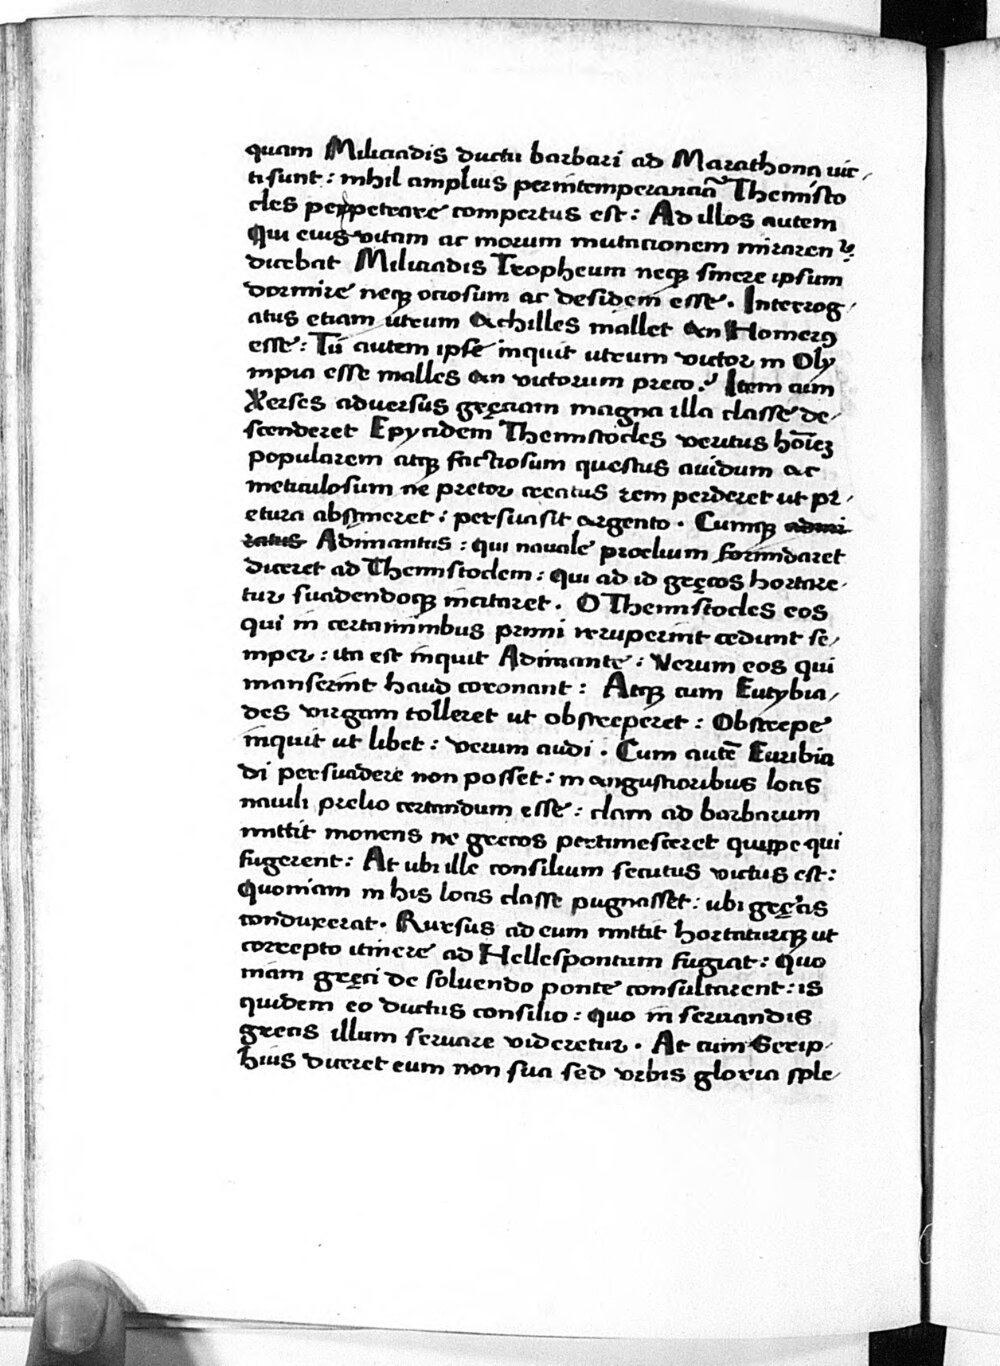 quam Milciadis ductu barbari ad Marathona uic-
ti sunt: nihil amplius per intemperanciã Themisto
cles perpetrare compertus est: Ad illos autem
Qui eius vitam ac morum mutacionem mirarent&
dicebat Milciadis Tropheum neqꝫ sinere ipsum
dormire neqꝫ ociosum ac desidem esse. Interrog-
atus etiam utrum Achilles mallet An Homerꝯ
esse: Tu autem ipse inquit utrum victor in Oly
mpia esse malles An victorum preco. Item cum
Xerses adversus gręciam magna illa classe de-
scenderet Epycidem Themistocles veritus hoīeꝫ
popularem atqꝫ factiosum questus auidum ac
meticulosum ne pretor creatus rem perderet ut pr-
etura abstineret: persuasit argento. Cumqꝫ admi
ratus Adimantus: qui nauale proelium formidaret
diceret ad Themistoclem: Qui ad id gręcos hortare-
tur suadendoqꝫ incitaret. O Themistocles eos
qui in certaminibus primi reruperint cedunt se-
mper: ita est inquit Adimante: Verum eos qui
manserint haud coronant: Atqꝫ cum Eutybia-
des virgam tolleret ut obstreperet: Obstrepe
inquit ut libet: verum audi. Cum autē Euribia
di persuadere non posset: in angustioribus locis
nauli prelio certandum esse: clam ad barbarum
mittit monens ne grecos pertimesceret quippe qui
fugerent: At ubi ille consilium secutus victus est:
Quoniam in his locis classe pugnasset: ubi gręcis
conduxerat. Rursus ad eum mittit hortaturqꝫ ut
correpto itinere ad Hellespontum fugiat: Quo
niam gręci de soluendo ponte consultarent: is
quidem eo ductus consilio: quo in seruandis
grecis illum seruare videretur. At cum Serip-
hius diceret eum non sua sed vrbis gloria sple-